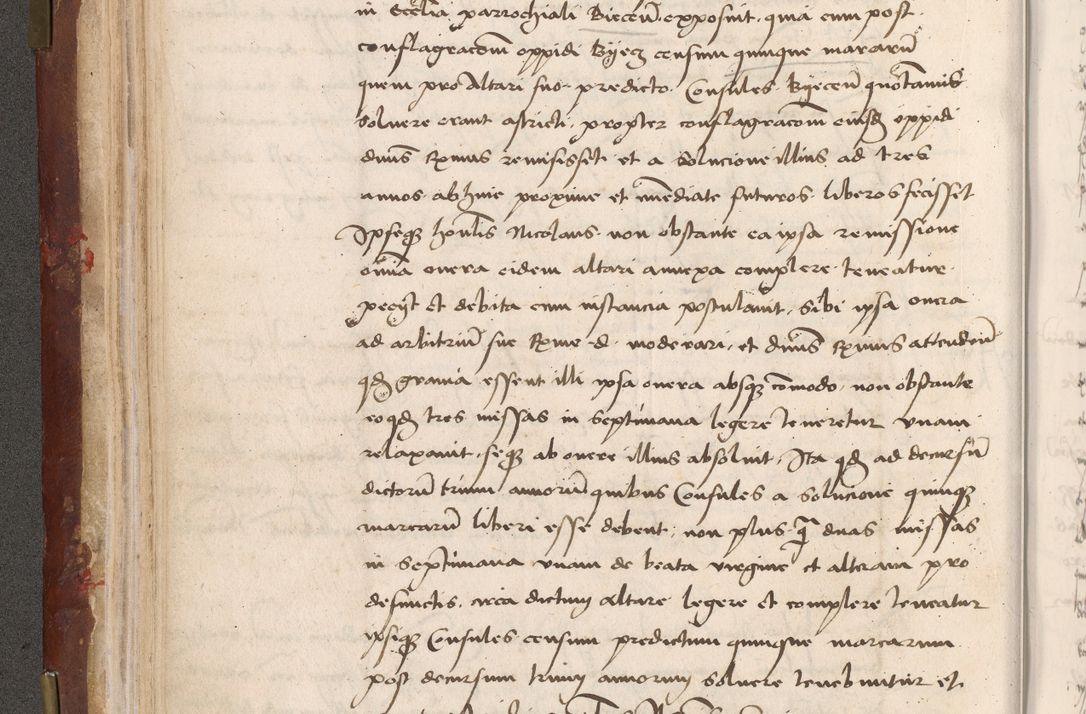 in Eccl͞ia parrochiali Biecen͞ exposuit quia cum post
conflagrac͞om oppidi Byecz censum quinque marcaru͞
quem pro Altari suo predicto Consules Byecen͞ quota͞nnis
soluere erant astricti, propter conflagrac͞om eiusd͞ oppidi
dn͞us R͞mus remisisset et a solucione illius ad tres
annos abhinc proxime et im͞ediate futuros liberos fecisset
Ipseq͞ hon͞lis Nicolaus non obstante ea ipsa remissione
om͞ia onera eidem altari annexa complere teneatur
peciit et debita cum instancia postulauit, sibi ipsa onera
ad arbitriu͞ sue R͞me d. moderari, et dn͞us R͞mus attenden͞
q͞d grauia essent illi ipsa onera absq͞ co͞modo, non obstante
eoq͞d tres missas in septimana legere teneretur vnam
relaxauit, seq͞ ab onere illius absoluit, Ita q͞d ad decursu͞
dictoru͞ trium annoru͞ quibus Consules a soluc͞ione quinq͞
marcaru͞ liberi esse debent, non plus q͞ duas missas
in septimana vnam de beata virgine et alteram pro
defunctis, circa dictum altare legere et complere teneatur
ipsiq͞ Consules censum predictum quinque marcarum
post decursum trium annorum soluere tenebuntur et